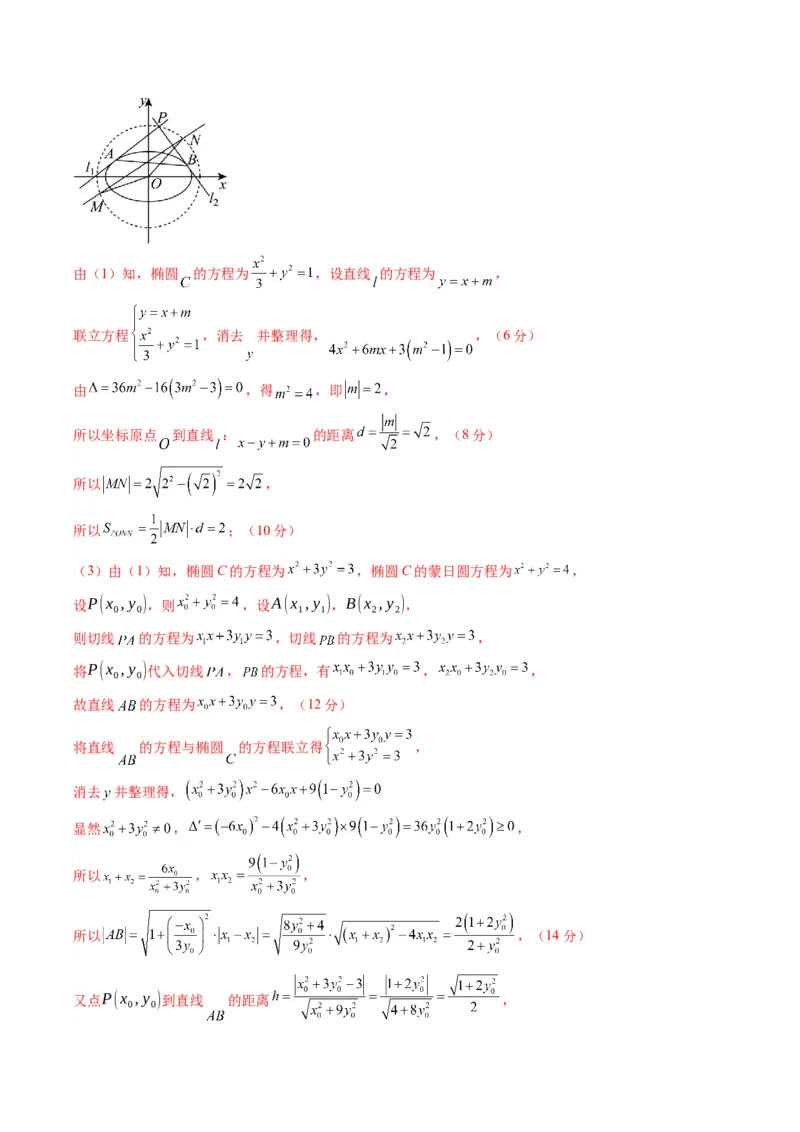 y
P
N
A
B
l₁
O
x
M
l₂
由（1）知，椭圆 C 的方程为 x²/3 + y² = 1，设直线 l 的方程为 y = x + m，
联立方程 { y = x + m, x²/3 + y² = 1 ，消去 y 并整理得，4x² + 6mx + 3(m² − 1) = 0，（6 分）
由 Δ = 36m² − 16(3m² − 3) = 0，得 m² = 4，即 |m| = 2，
所以坐标原点 O 到直线 l：x − y + m = 0 的距离 d = |m|/√2 = √2，（8 分）
所以 |MN| = 2√(2² − (√2)²) = 2√2，
所以 S△ONN = 1/2 |MN|·d = 2；（10 分）
（3）由（1）知，椭圆 C 的方程为 x² + 3y² = 3，椭圆 C 的蒙日圆方程为 x² + y² = 4，
设 P(x₀, y₀)，则 x₀² + y₀² = 4，设 A(x₁, y₁)，B(x₂, y₂)，
则切线 PA 的方程为 x₁x + 3y₁y = 3，切线 PB 的方程为 x₂x + 3y₂y = 3，
将 P(x₀, y₀) 代入切线 PA，PB 的方程，有 x₁x₀ + 3y₁y₀ = 3，x₂x₀ + 3y₂y₀ = 3，
故直线 AB 的方程为 x₀x + 3y₀y = 3，（12 分）
将直线 AB 的方程与椭圆 C 的方程联立得 { x₀x + 3y₀y = 3, x² + 3y² = 3 ，
消去 y 并整理得，(x₀² + 3y₀²)x² − 6x₀x + 9(1 − y₀²) = 0
显然 x₀² + 3y₀² ≠ 0，Δ′ = (−6x₀)² − 4(x₀² + 3y₀²)×9(1 − y₀²) = 36y₀²(1 + 2y₀²) ≥ 0，
所以 x₁ + x₂ = 6x₀/(x₀² + 3y₀²)，x₁x₂ = 9(1 − y₀²)/(x₀² + 3y₀²)，
所以 |AB| = √(1 + (−x₀/3y₀)²) · |x₁ − x₂| = √((8y₀² + 4)/9y₀²) · √((x₁ + x₂)² − 4x₁x₂) = 2(1 + 2y₀²)/(2 + y₀²)，（14 分）
又点 P(x₀, y₀) 到直线 AB 的距离 h = |x₀² + 3y₀² − 3|/√(x₀² + 9y₀²) = |1 + 2y₀²|/√(4 + 8y₀²) = √(1 + 2y₀²)/2，